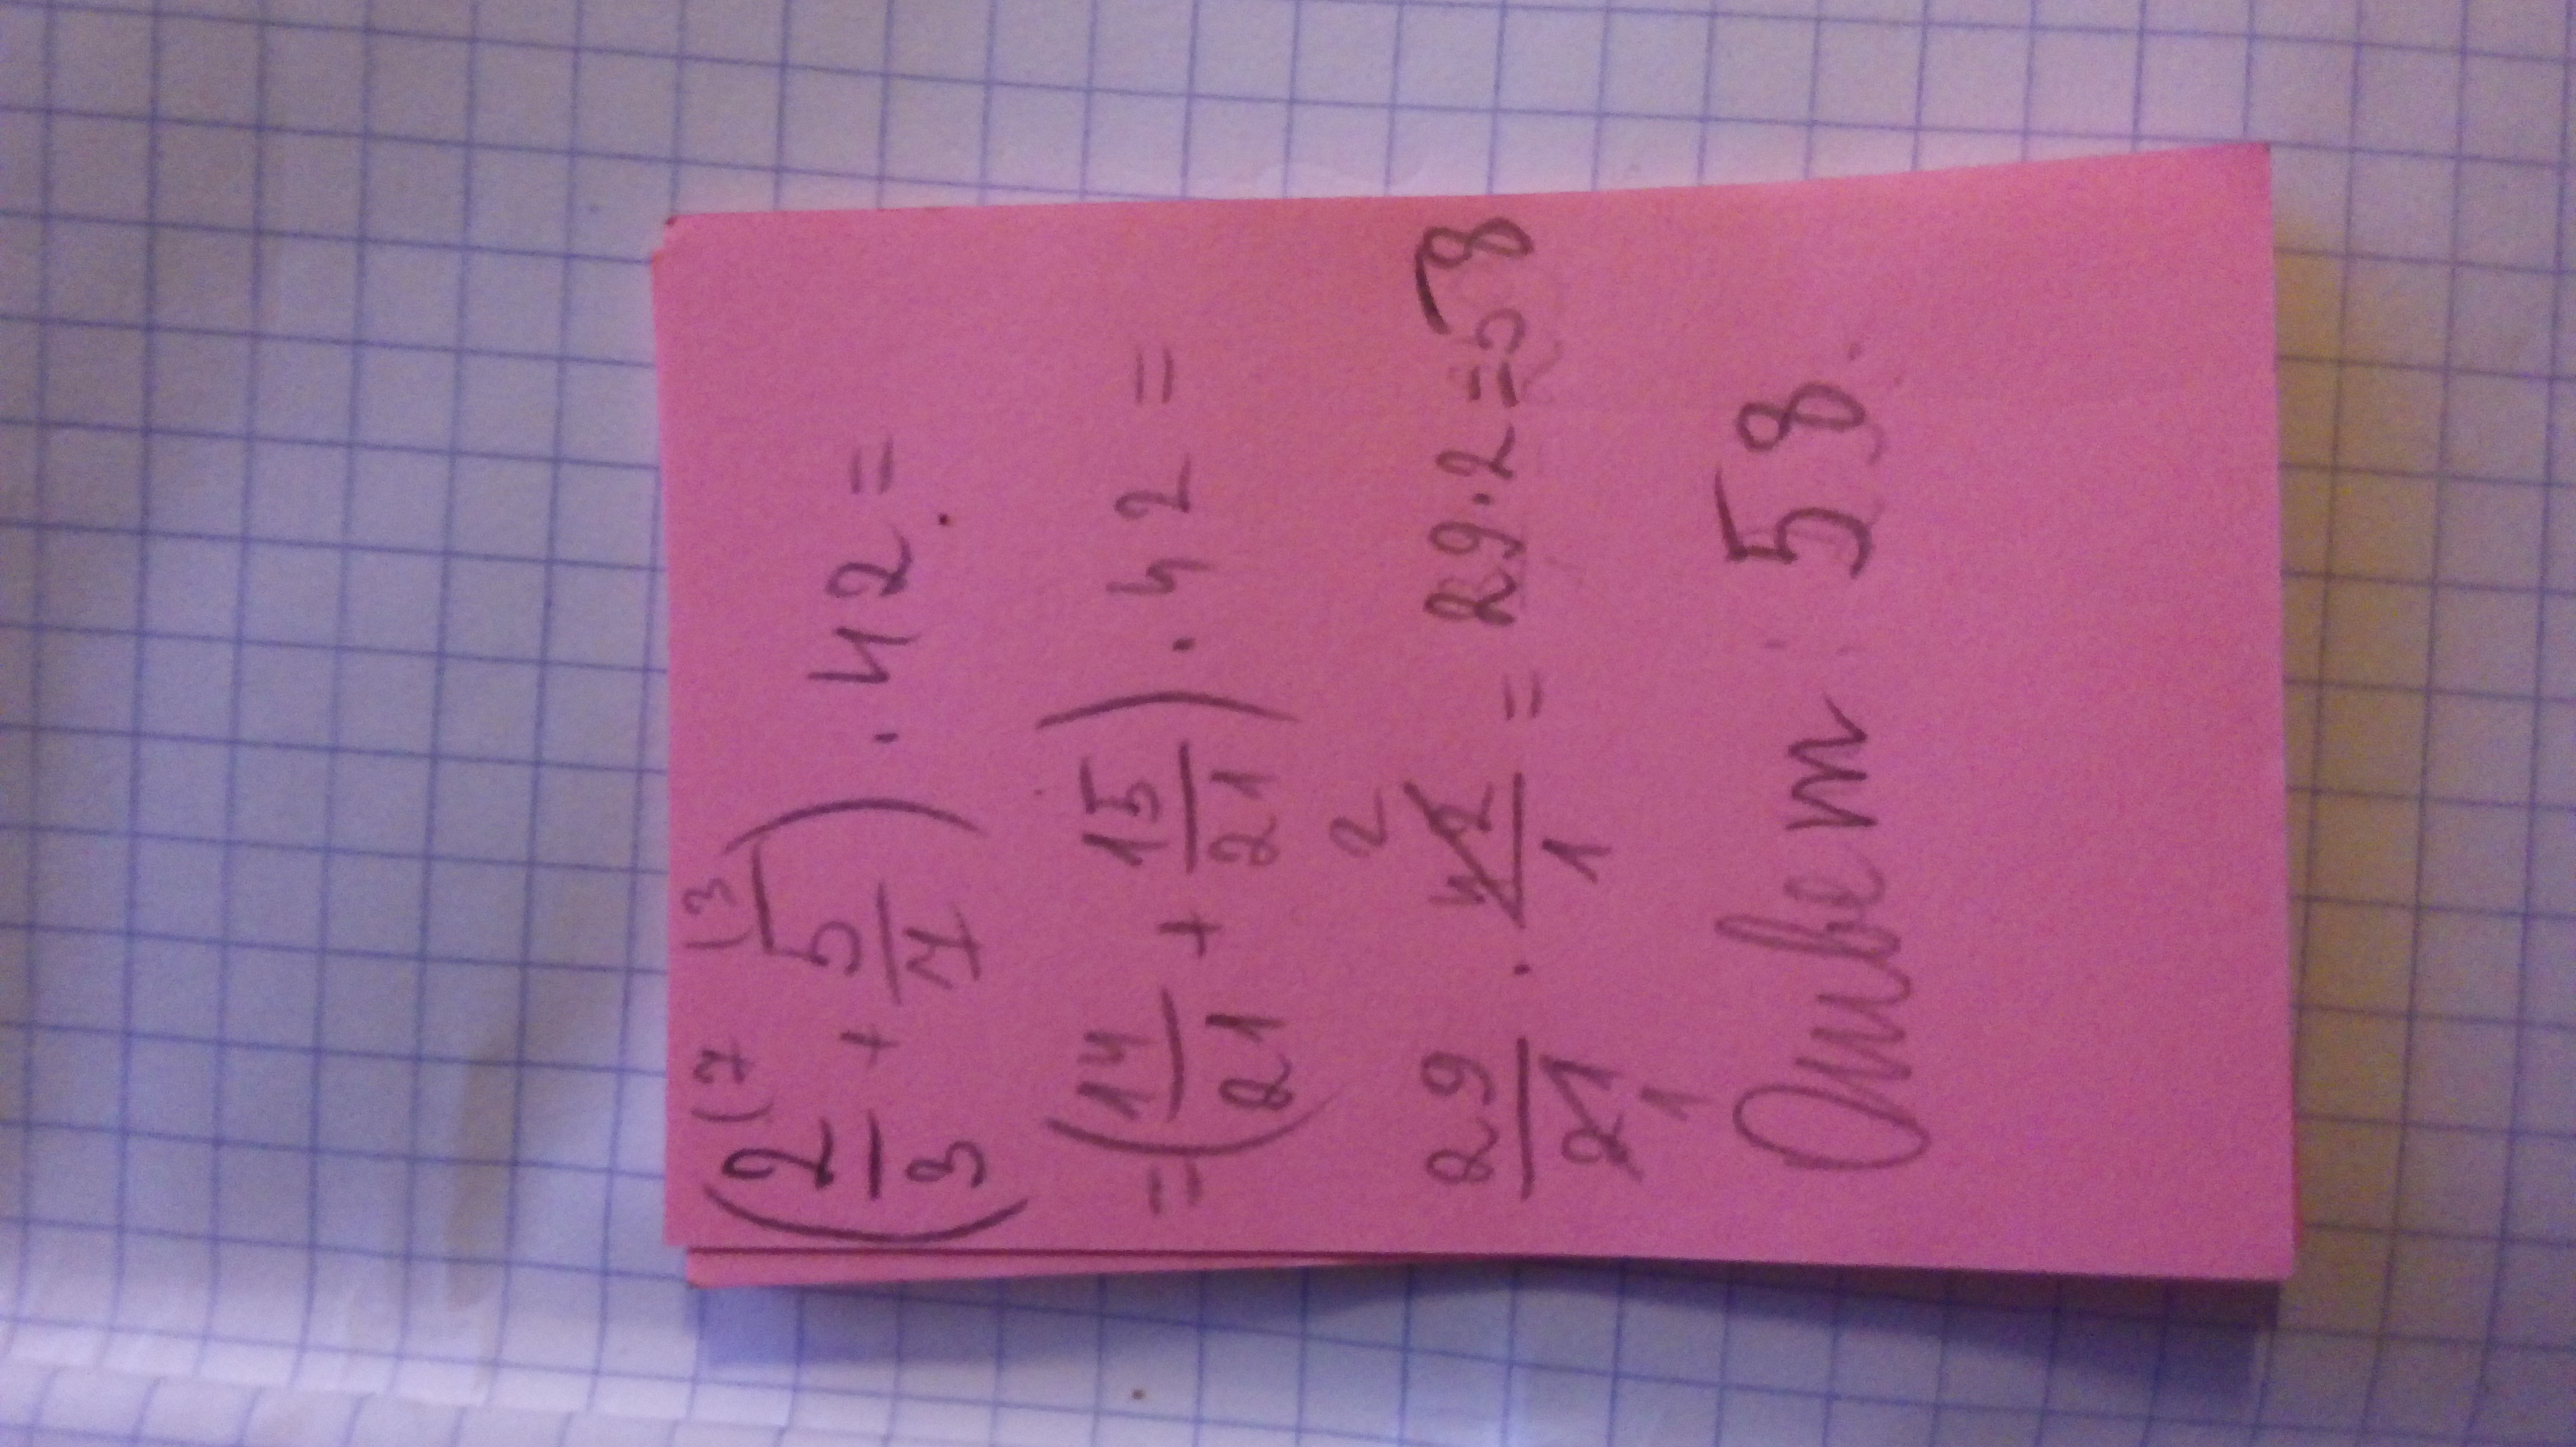 (2/3 (7 + 5/7 (3) · 42 =
= (14/21 + 15/21) · 42 =
29/21 1 · 42/1 2 = 29 · 2 = 58
Ответ: 58.